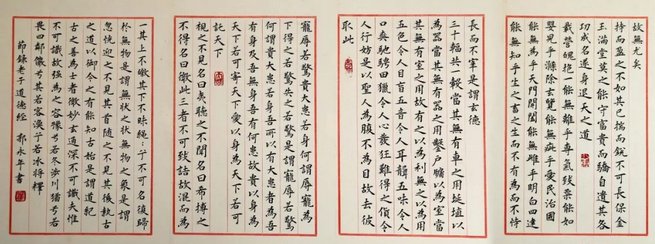 故無尤矣
持而盈之不如其已揣而銳不可長保金
玉滿堂莫之能守富貴而驕自遺其咎
功成名遂身退天之道
載營魄抱一能無離乎專氣致柔能如
嬰兒乎滌除玄覽能無疵乎愛民治國
能無為乎天門開闔能無雌乎明白四達
能無知乎生之畜之生而不有為而不恃
長而不宰是謂玄德
三十輻共一轂當其無有車之用埏埴以
為器當其無有器之用鑿戶牖以為室當
其無有室之用故有之以為利無之以為用
五色令人目盲五音令人耳聾五味令人
口爽馳騁田獵令人心發狂難得之貨令
人行妨是以聖人為腹不為目故去彼
取此
寵辱若驚貴大患若身何謂寵辱寵為
下得之若驚失之若驚是謂寵辱若驚
何謂貴大患若身吾所以有大患者為吾
有身及吾無身吾有何患故貴以身為
天下若可寄天下愛以身為天下若可
託天下
視之不見名曰夷聽之不聞名曰希搏之
不得名曰微此三者不可致詰故混而為
一其上不皦其下不昧繩々兮不可名復歸
於無物是謂無狀之狀無物之象是謂
忽恍迎之不見其首隨之不見其後執古
之道以御今之有能知古始是謂道紀
古之善為士者微妙玄通深不可識夫惟
不可識故強為之容豫兮若冬涉川猶兮若
畏四鄰儼兮其若容渙兮若冰將釋
節錄老子道德經 郭永年書